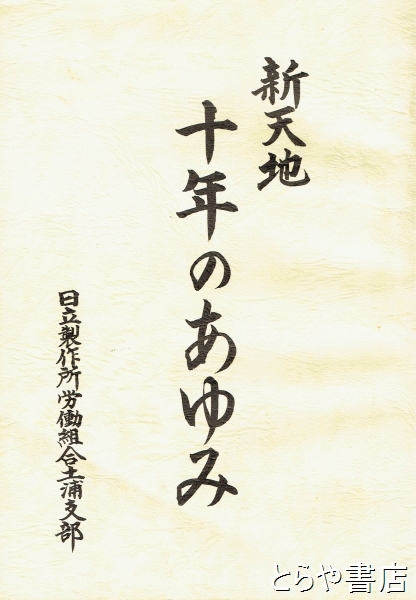 新天地
十年のあゆみ
日立製作所労働組合土浦支部
とらや書店